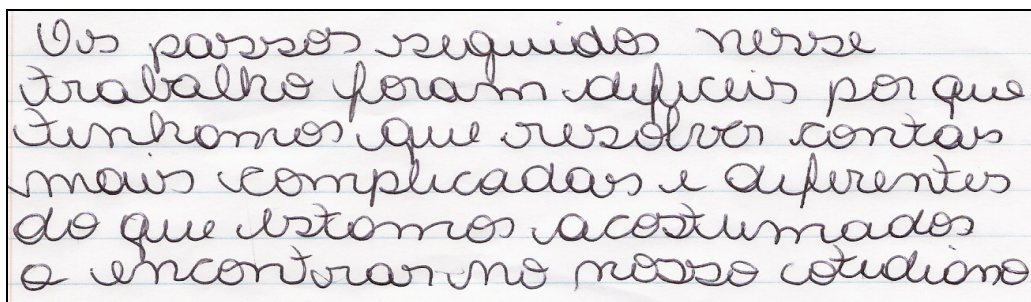 Os passos seguidos nesse
trabalho foram dificeis por que
tinhamos que resolver contas
mais complicadas e diferentes
do que estamos acostumados
a encontrar no nosso cotidiano